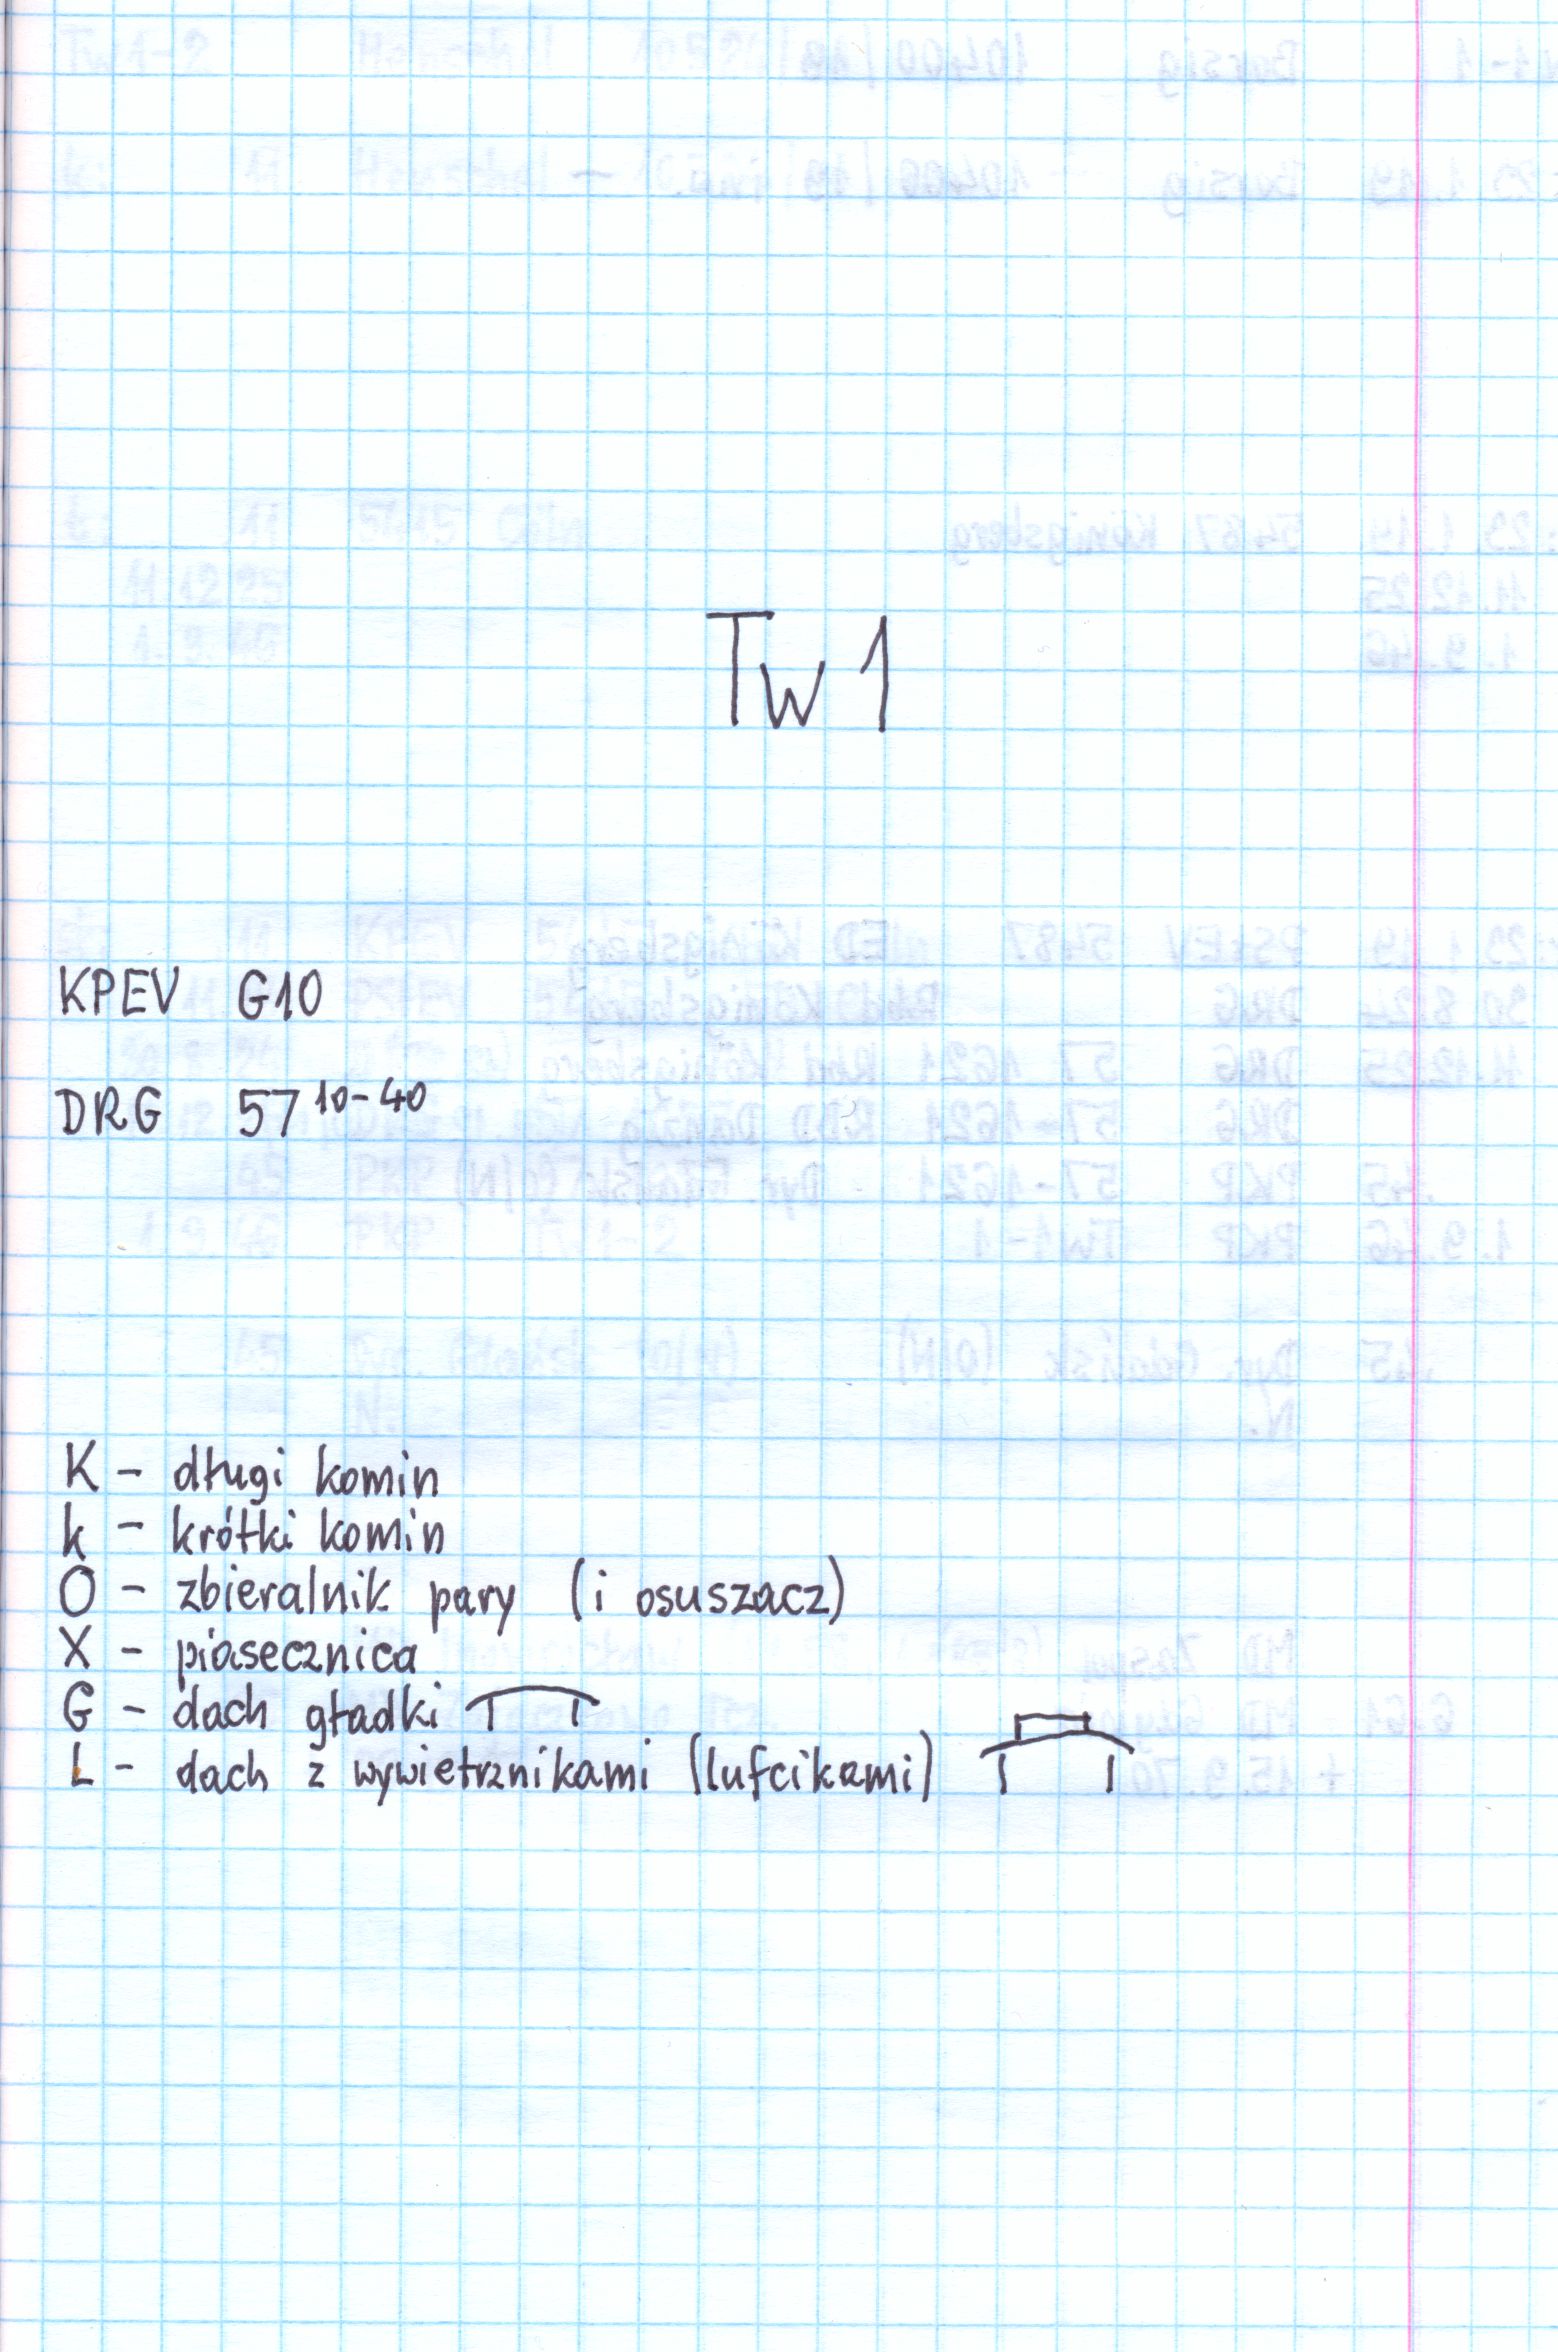 Tw 1
KPEV G10
DRG 57 10-40
K - długi komin
k - krótki komin
O - zbieralnik pary (i osuszacz)
X - piasecznica
G - dach gładki
L - dach z wywietrznikami (lufcikami)